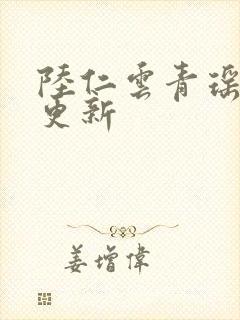 陸仁雲青瑶
更新
姜增偉